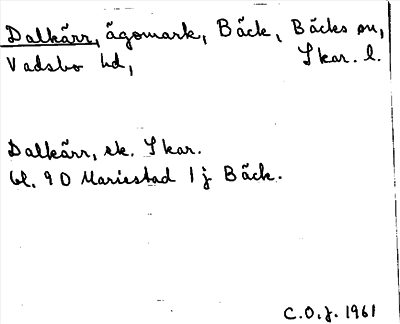 Dalkärr, ägomark, Bäck, Bäcks sn,
Vadsbo hd, Skar. l.
Dalkärr, ek. Skar.
bl. 9 D Mariestad 1 j Bäck.
C.O.J. 1961